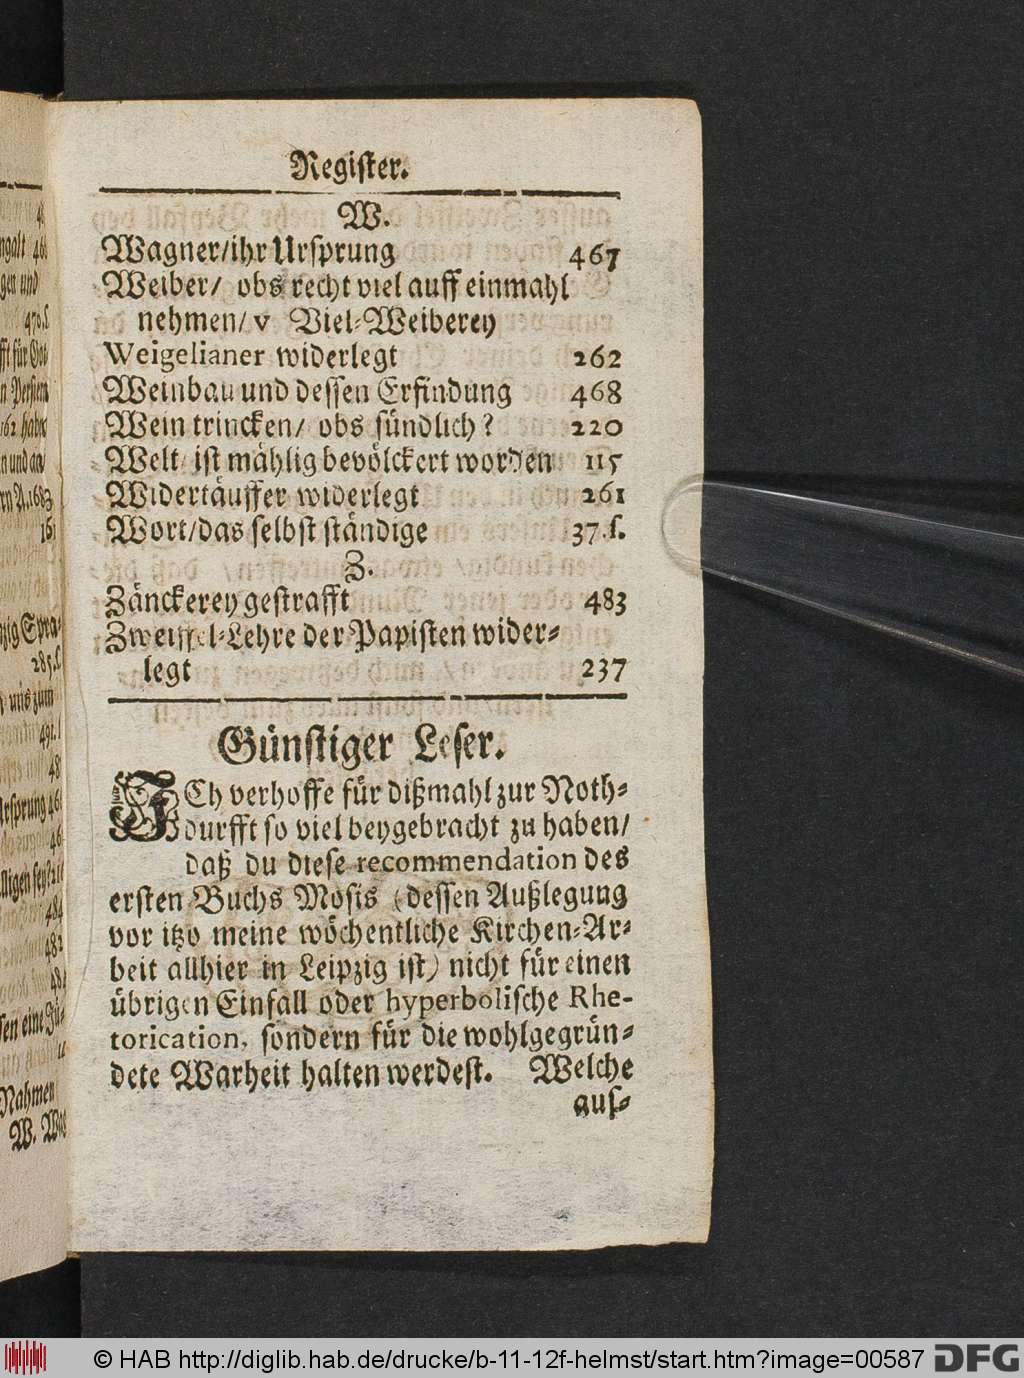 Register.
W.
Wagner/ihr Ursprung 467
Weiber/ obs recht viel auff einmahl
nehmen/ v Viel-Weiberey
Weigelianer widerlegt 262
Weinbau und dessen Erfindung 468
Wein trincken/ obs sündlich? 220
Welt ist mählig bevölckert worden 115
Widertäuffer widerlegt 261
Wort/das selbst ständige 37.s.
Z.
Zänckerey gestrafft 483
Zweiffel-Lehre der Papisten wider-
legt 237
Günstiger Leser.
ICh verhoffe für dißmahl zur Noth-
durfft so viel beygebracht zu haben/
daß du diese recommendation des
ersten Buchs Mosis (dessen Außlegung
vor itzo meine wöchentliche Kirchen-Ar-
beit allhier in Leipzig ist) nicht für einen
übrigen Einfall oder hyperbolische Rhe-
torication, sondern für die wohlgegrün-
dete Warheit halten werdest. Welche
aus-
© HAB http://diglib.hab.de/drucke/b-11-12f-helmst/start.htm?image=00587 DFG